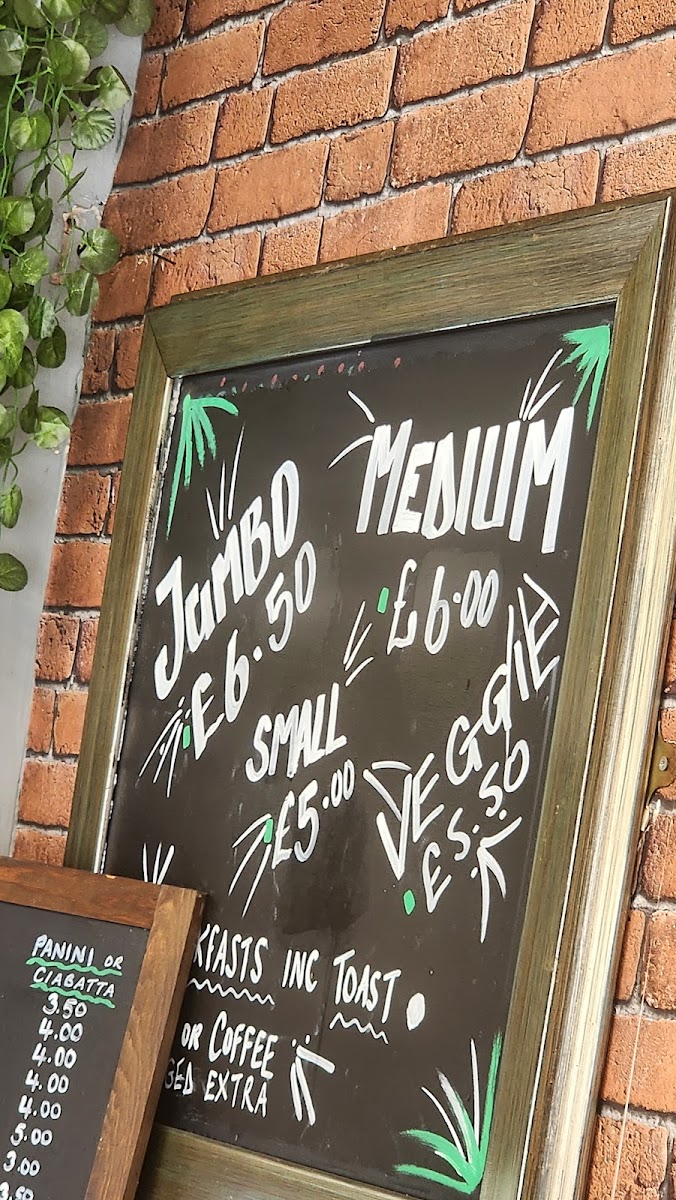 JUMBO
£6.50
MEDIUM
£6.00
SMALL
£5.00
VEGGIE
£5.50
KFASTS INC TOAST
OR COFFEE
GED EXTRA
PANINI OR
CIABATTA
3.50
4.00
4.00
4.00
4.00
5.00
3.00
3.50